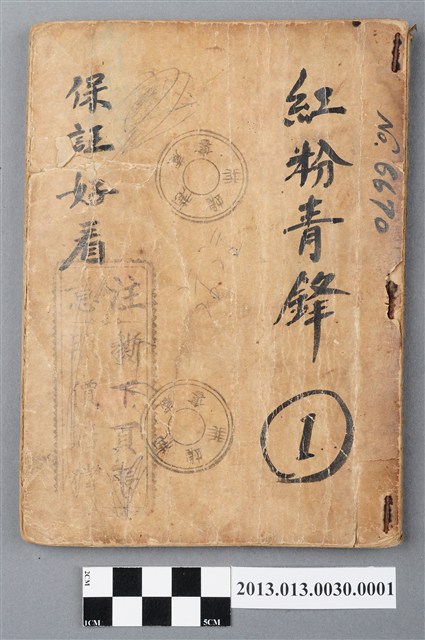 紅粉青鋒
1
保証好看
No. 6670
注撕下頁
2CM
1CM
5CM
2013.013.0030.0001